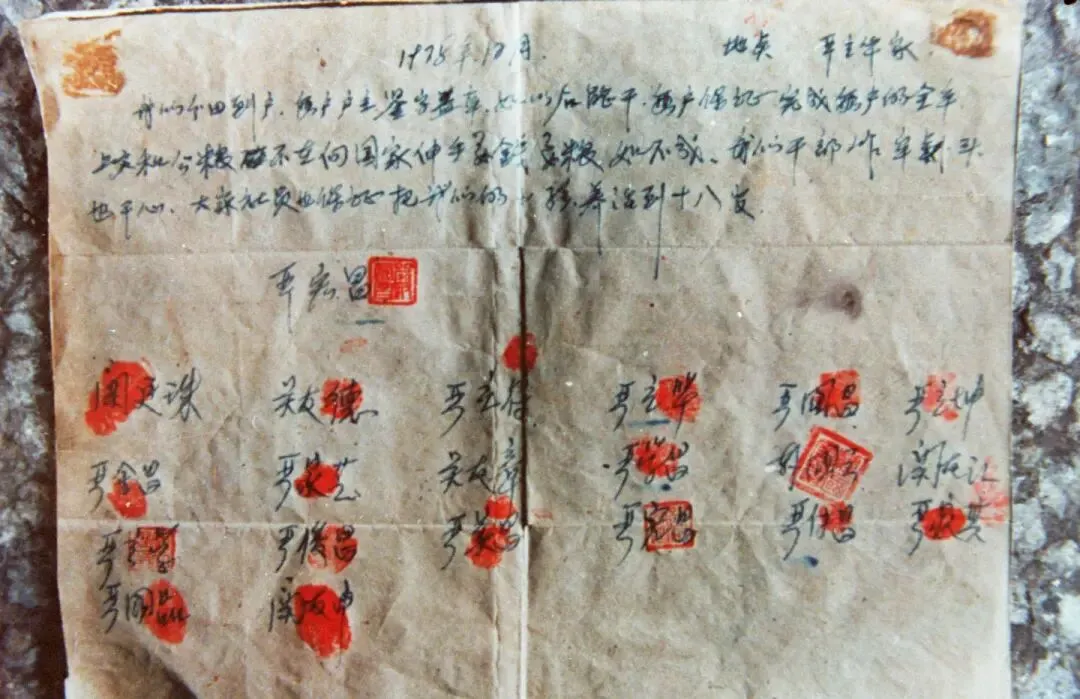 1978年12月. 地点 严立华家
我们分田到户,每户户主签字盖章,如以后能干,每户保证完成每户的全年
上交和公粮 不在向国家伸手要钱要粮 如不成、我们干部作牢刹头
也干心、大家社员也保证把我们的小孩养活到十八岁.
严宏昌
关廷珠 关友德 严立符 严立华 严国昌 严立坤
严金昌 严家芝 关友章 严学昌 韩国云 关友江
严立学 严俊昌 严美昌 严宏昌 严付昌 严家其
严国品 关友申